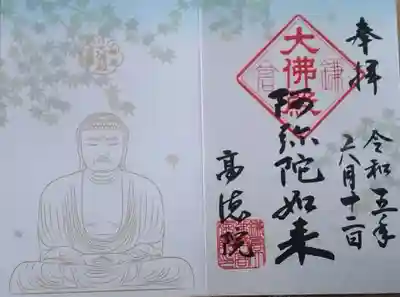 奉拝
令和五年
月十二日
大佛殿
阿弥陀如来
高徳院